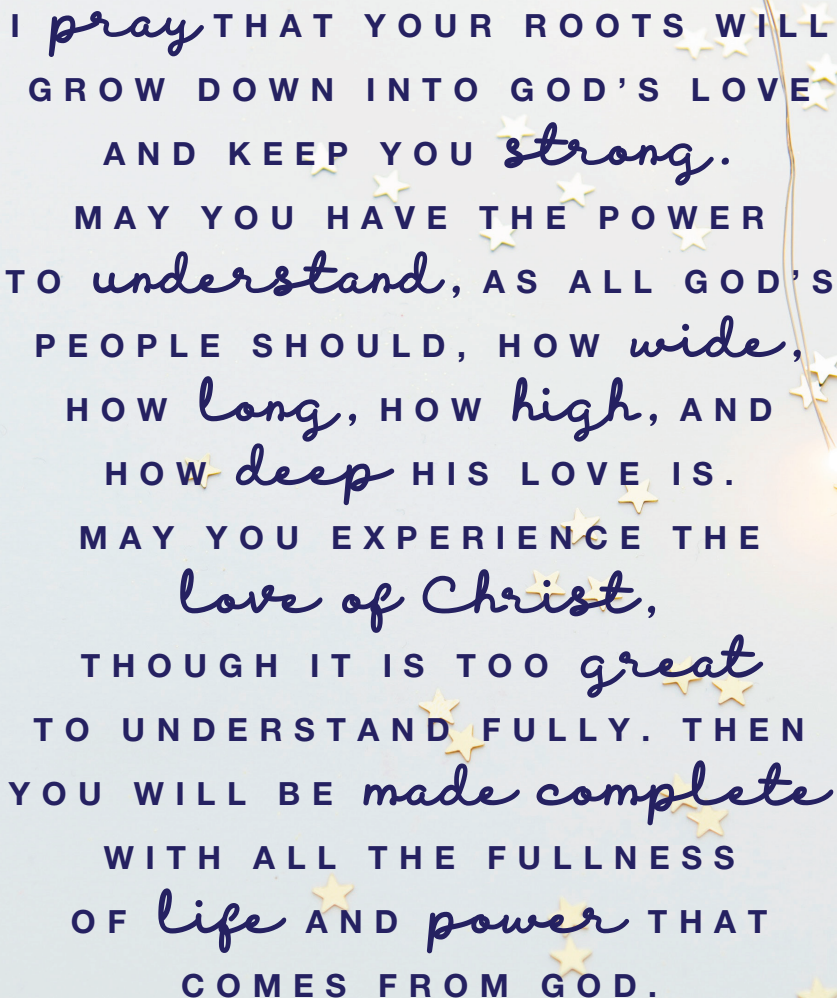 I pray THAT YOUR ROOTS WILL
GROW DOWN INTO GOD'S LOVE
AND KEEP YOU strong.
MAY YOU HAVE THE POWER
TO understand, AS ALL GOD'S
PEOPLE SHOULD, HOW wide,
HOW long, HOW high, AND
HOW deep HIS LOVE IS.
MAY YOU EXPERIENCE THE
love of Christ,
THOUGH IT IS TOO great
TO UNDERSTAND FULLY. THEN
YOU WILL BE made complete
WITH ALL THE FULLNESS
OF life AND power THAT
COMES FROM GOD.